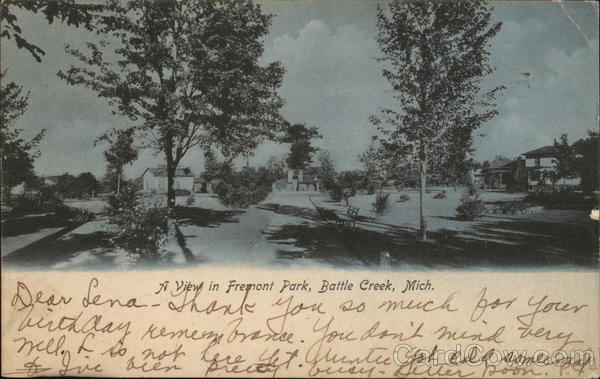 A View in Fremont Park, Battle Creek, Mich.
Dear Lena - Thank you so much for your
birthday remembrance. You don't mind very
well, & so not here yet. Auntie
& I've been pretty busy - Letter soon.
CardCow.com